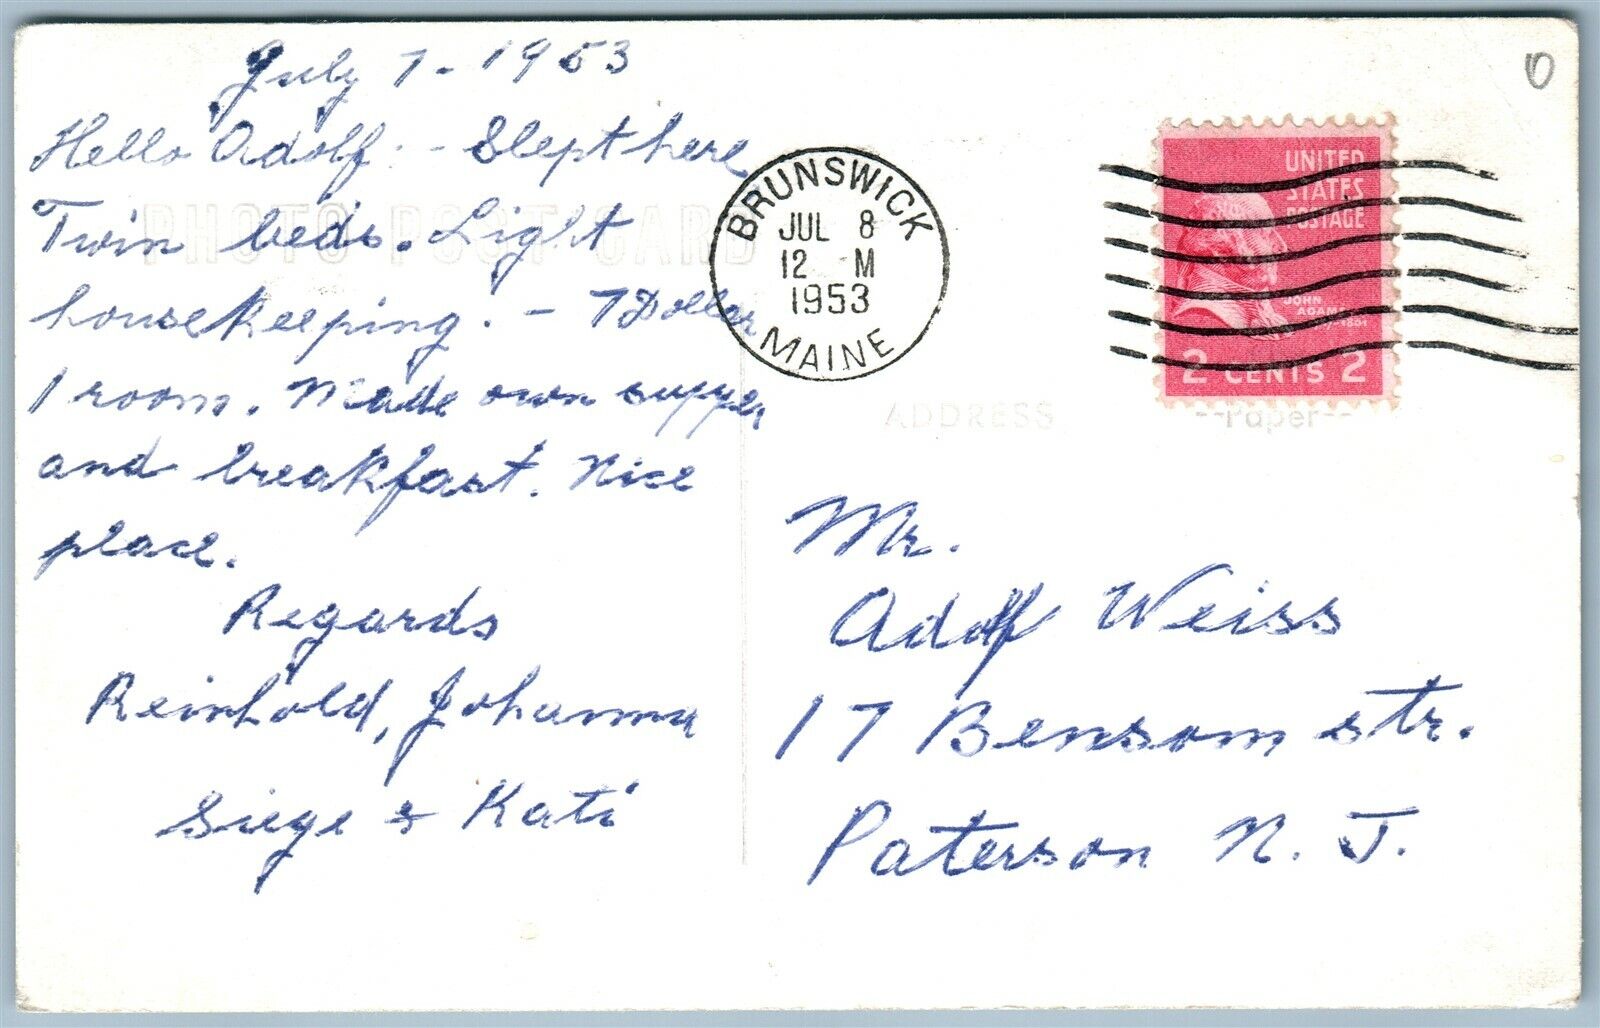 July 7 - 1953
Hello Adolf: - Slept here
Twin beds. Light
housekeeping. - 7 Dollar
1 room. Made own supper
and breakfast. Nice
place.
Regards
Reinhold, Johanna
Siege & Kati
PHOTO POST CARD
BRUNSWICK
JUL 8
12 M
1953
MAINE
UNITED
STATES
POSTAGE
JOHN
ADAMS
2 CENTS 2
ADDRESS
--Paper--
Mr.
Adolf Weiss
17 Benson str.
Paterson N. J.